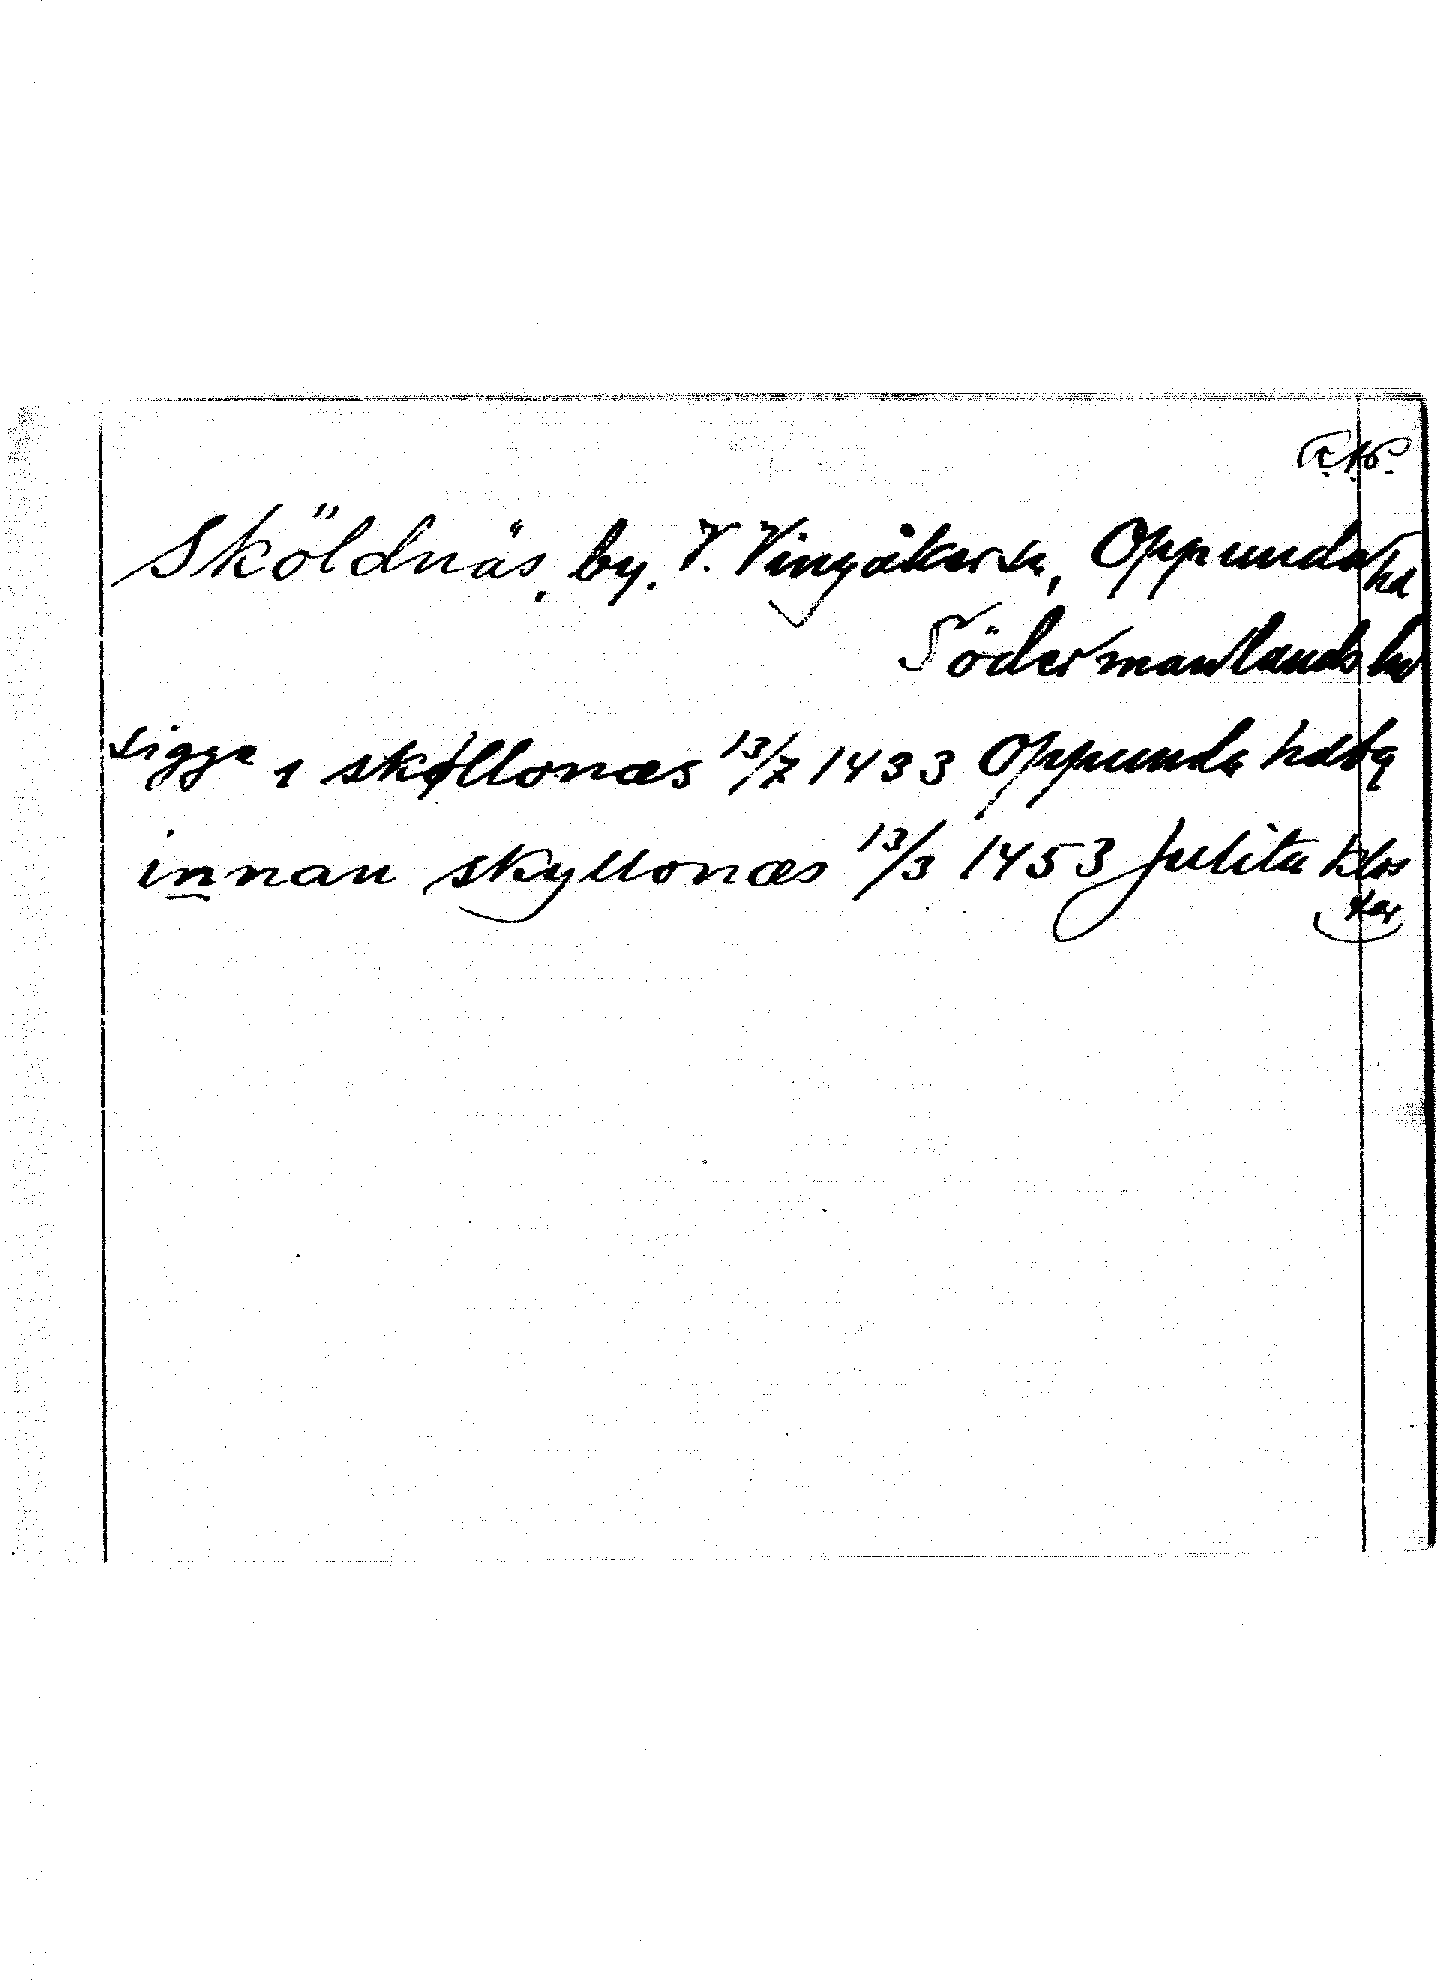 Sköldnäs, by. V. Vingåkers sn, Oppunda hd
Södermanlands län
sigge i skøllonæs 13/7 1433 Oppunda hdsg
innan skyllonæs 13/3 1453 Julita klos
ter